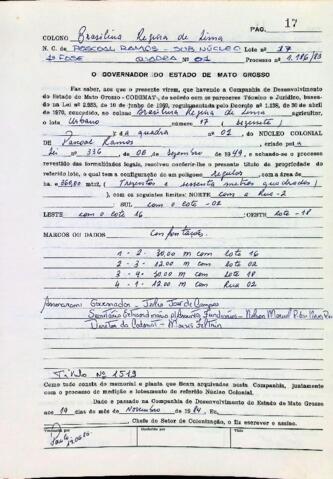 17
COLONO Brasilina Regina de Lima PAG.
N. C. de PASCOAL RAMOS - SUB NÚCLEO Lote nº 17
1ª FASE QUADRA Nº 01 Processo nº 1.186/83
O GOVERNADOR DO ESTADO DE MATO GROSSO
Faz saber, aos que o presente virem, que havendo a Companhia de Desenvolvimento
do Estado de Mato Grosso - CODEMAT, de acôrdo com os pareceres Técnico e Jurídico, basea-
do na Lei nº 2.925, de 10 de junho de 1969, regulamentada pelo Decreto 1.138, de 30 de abril
de 1970, concedido, ao colono Brasilina Regina de Lima agricultor,
o lote Urbano número 17 ( Dezessete )
da quadra nº 01, DO NÚCLEO COLONIAL
DE Pascoal Ramos, criado pela
Lei 336, de 06 de Dezembro de 1949, e achando-se o processo
revestido das formalidades legais, resolveu conferir-lhe o presente título de propriedade do
referido lote, o qual tem a configuração de um polígono regular, com a área de
ha 360,00 mts2, (Trezentos e sessenta metros quadrados)
), com os seguintes limites: NORTE com a Rua-2
SUL com o lote - 02
LESTE com o lote 16 OESTE lote - 18
MARCOS OU DADOS Confrontações.
1 - 2 - 30,00 m com lote 16
2 - 3 - 12,00 m com lote 02
3 - 4 - 30,00 m com lote 18
4 - 1 - 12,00 m com Rua 02
Assinaram: Governador - Julio José de Campos
Diretor da Codemat - Moisés Feltrin
Título Nº 1513
Como tudo consta do memorial e planta que ficam arquivados nesta Companhia, juntamente
com o processo de medição e loteamento do referido Núcleo Colonial.
Dado e passado na Companhia de Desenvolvimento do Estado de Mato Grosso
aos 19 dias do mês de Novembro de 1984, Eu,
, Chefe do Setor de Colonização, o fiz escrever e assino.